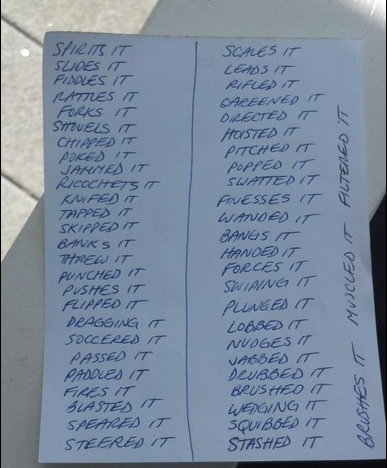 SPIRITS IT
SLIDES IT
FIDDLES IT
RATTLES IT
FORKS IT
SHOVELS IT
CHIPPED IT
POKED IT
JAMMED IT
RICOCHETS IT
KNIFED IT
TAPPED IT
SKIPPED IT
BANKS IT
THREW IT
PUNCHED IT
PUSHES IT
FLIPPED IT
DRAGGING IT
SOCCERED IT
PASSED IT
PADDLED IT
FIRES IT
BLASTED IT
SPEARED IT
STEERED IT
SCALES IT
LEADS IT
RIFLED IT
CAREENED IT
DIRECTED IT
HOISTED IT
PITCHED IT
POPPED IT
SWATTED IT
FINESSES IT
WANDED IT
BANGS IT
HANDED IT
FORCES IT
SWIPING IT
PLUNGED IT
LOBBED IT
NUDGES IT
JABBED IT
DRUBBED IT
BRUSHED IT
WEDGING IT
SQUIBBED IT
STASHED IT
BRUSHES IT MUSCLED IT FILTERED IT